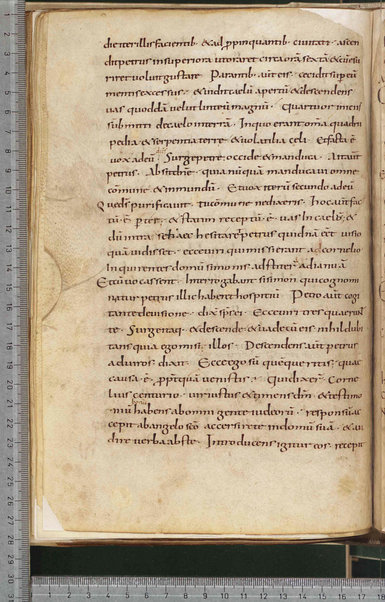 die iter illis facientib; & adppinquantib; ciuitati · ascen
dit petrus in superiora ut oraret circa orā sextā & cū esu
riret uoluit gustare Parantib; aūt eis · cecidit sup eū
mentis excessus · & uidit caelū apertū & descendens
uas quoddā uelut linteū magnū · Quattuor initiis
submitti de caelo in terrā · In quo erant omīa quadru
pedia & serpentia terre & uolatilia celi · Et facta ē
uox ad eū · Surge petre occide & manduca · Ait aūt
petrus · Absit dn̄e · quia nūquā manducaui omne
cōmune & inmundū · Et uox iterū secundo ad eū
Quae ds̄ purificauit · tu cōmune ne dixeris · Hoc aūt fac
tū ē p ter · & statim receptū ē uas in caelū · &
dū intra se haesitaret petrus quidnā eēt uisio
quā uidisset · ecce uiri qui missi erant a cornelio
Inquirentes domū simonis adstiter ad ianuā
Et cū uocassent · Interrogabant si simon qui cogno mi
natur petrus illic haberet hospitiū · Petro aūt cogi
tante de uisione · dix sps ei · Ecce uiri tres quaerunt
te · Surge itaq; & descende · & uade cū eis nihil dubi
tans quia ego misi illos · Descendens aūt petrus
ad uiros dixit · Ecce ego sū quē queritis · quae
causa ē pp quā uenistis · Qui dixer · Corne
lius centurio · uir iustus & timens dm̄ · & testimo
niū habens ab omni gente iudeorū · responsū ac
cepit ab angelo sco accersire te in domū suā · & au
dire uerba abs te · Introducens igitur eos · recepit
1 2 3 4 5 6 7 8 9 10 11 12 13 14 15 16 17 18